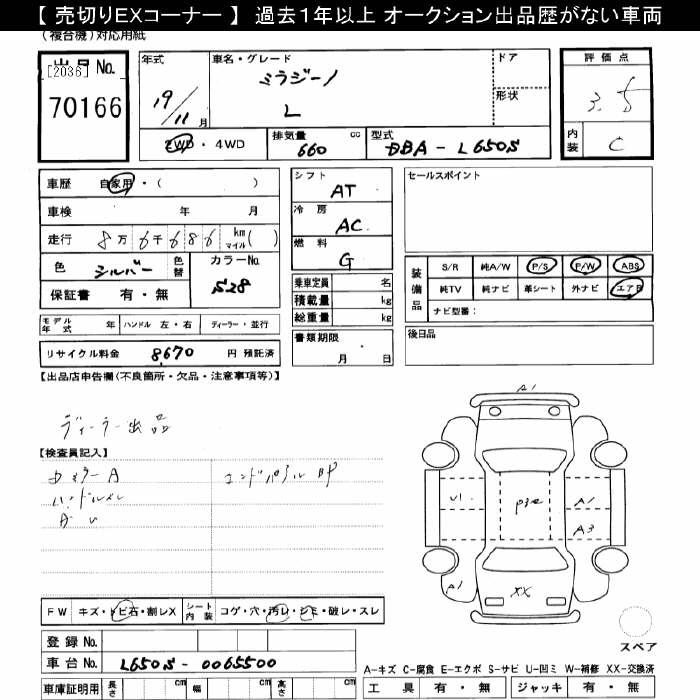 【 売切りEXコーナー 】 過去１年以上 オークション出品歴がない車両
(複合機)対応用紙
出品 No.
[2036]
70166
年式
19/11月
車名・グレード
ミラジーノ
L
ドア
形状
評価点
3.5
内装
C
2WD・4WD
排気量
660 cc
型式
DBA-L650S
車歴 自家用・( )
車検 年 月
走行 8万6千686 km マイル( )
色 シルバー 色替
カラーNo.
S28
保証書 有・無
シフト
AT
冷房
AC
燃料
G
乗車定員 名
積載量 kg
総重量 kg
書類期限
月 日
セールスポイント
装備品
S/R 純A/W P/S P/W ABS
純TV 純ナビ 革シート 外ナビ エアB
ナビ型番：
後日品
モデル年式 年 ハンドル 左・右 ディーラー・並行
リサイクル料金 8,670 円 預託済
【出品店申告欄(不良箇所・欠品・注意事項等)】
ディーラー出品
【検査員記入】
エンドパネルBP
A1
U1
A1
A3
A1
XX
FW キズ・トビ石・割レX シート内装 コゲ・穴・汚レ・シミ・破レ・スレ
スペア
登録 No.
車台 No. L650S-0065500
A-キズ C-腐食 E-エクボ S-サビ U-凹ミ W-補修 XX-交換済
車庫証明用 長さ cm 幅 cm 高さ cm
工具 有・無 ジャッキ 有・無